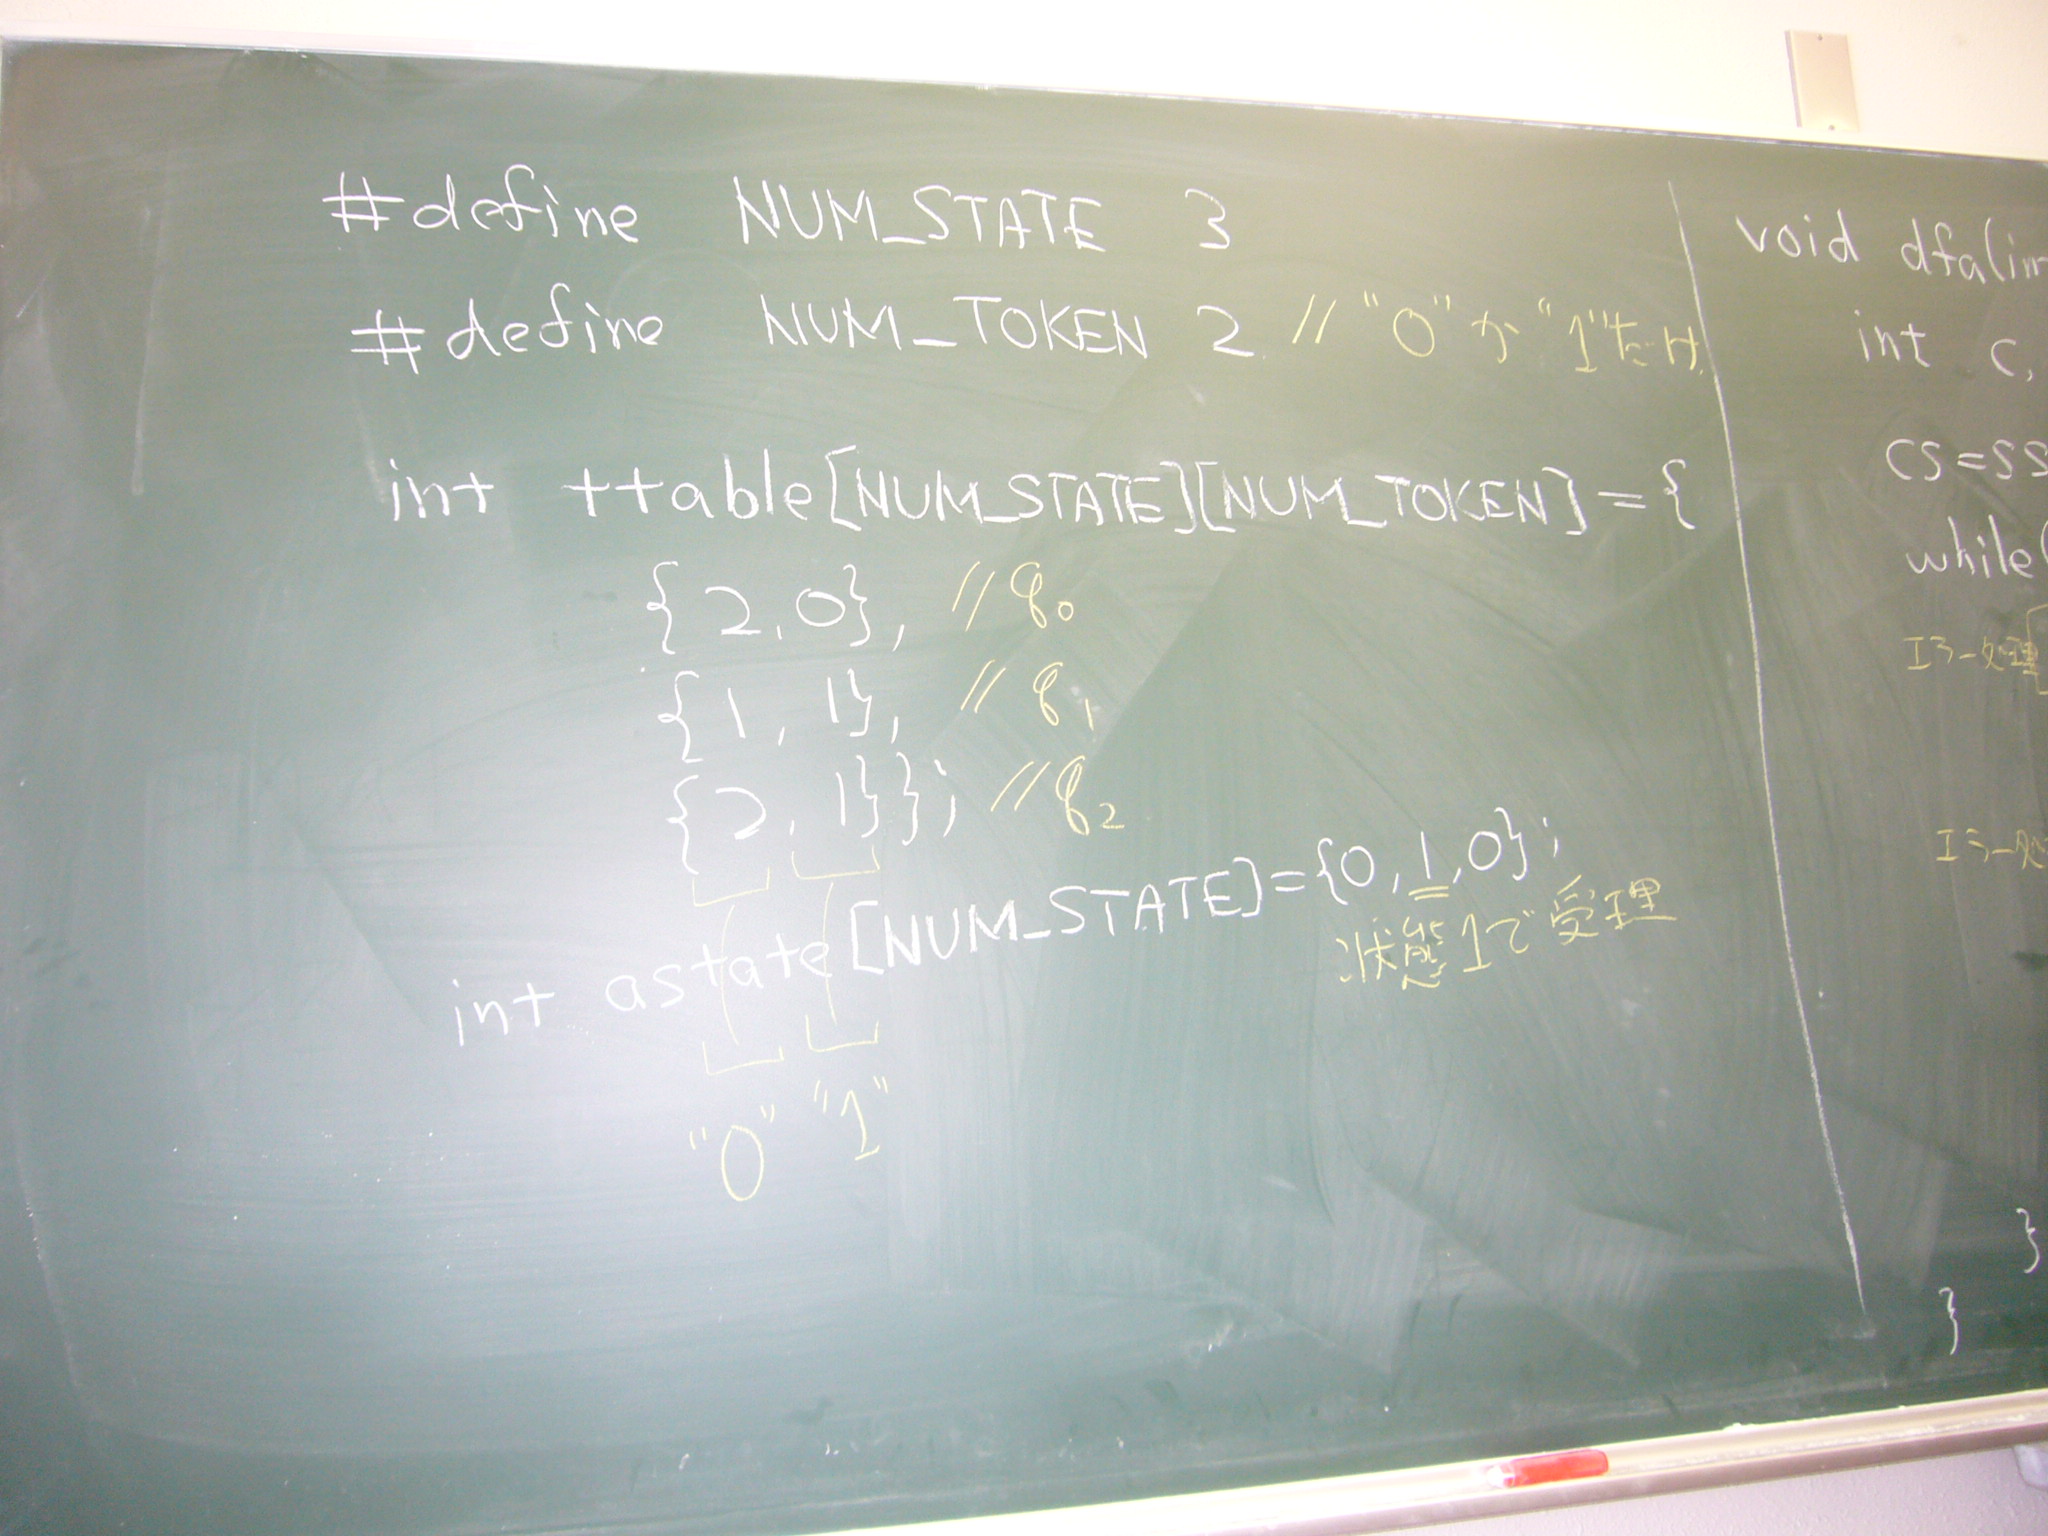 #define NUM_STATE 3
#define NUM_TOKEN 2 // "0"か"1"だけ
int ttable[NUM_STATE][NUM_TOKEN]={
{2,0}, //q0
{1,1}, //q1
{2,1}}; //q2
int astate[NUM_STATE]={0,1,0};
状態1で受理
"0" "1"
void dfa(in
int c,
cs=ss
while(
エラー処理
エラー処
}
}